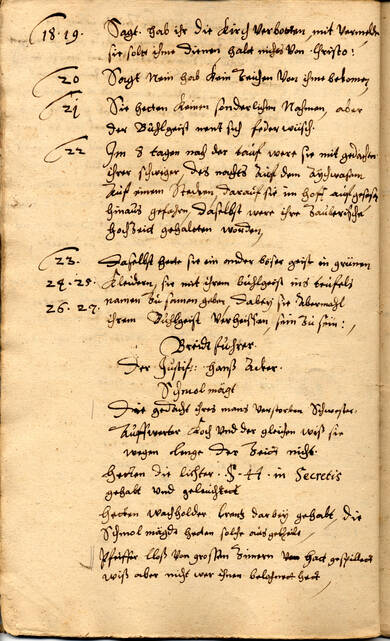 18. 19. Sagt. hab ihr die Kirch verbotten, mit vermelden
sie solte ihme dienen halte nichts von Christo:
20 Sagt Nein hab kein Zeichen von ihme bekomen,
21 Sie hetten keinen sonderlichen Nahmen, aber
der Buhlgeist nent sich federwüsch.
22 Im 8 tagen nach der tauf were sie mit gedachter
ihrer schwiger des nachts auf dem
auf einem Stecken, darauf sie im hoff aufgesessen
hinaus gefahren, daselbst were ihre Zauberische
hochzeid gehalten worden,
23. daselbst hette sie ein ander böser geist in grünen
24. 25. Kleidern, sie mit ihrem buhlgeist ins teufels
26. 27. namen zu samen geben dabey sie abermahl
ihrem Buhlgeist verheissen, sein zu sein:,
Breidtführer.
Der Justif: hanß Acker.
Schmol mägt
Die gedacht ihres mans verstorben Schwester.
Auffwerter Koch und der gleichen wiß sie
wegen lenge der Zeit nichts.
hetten die lichter. S. 44. in Secretis
gehabt und geleuchtet
hetten wachholder krentz darbey gehabt, die
Schmol mägde hetten solche ausgetheilt,
Pfeiffer von grossen hatt gespillet
wiß aber nicht wer ihnen belohnet hett,